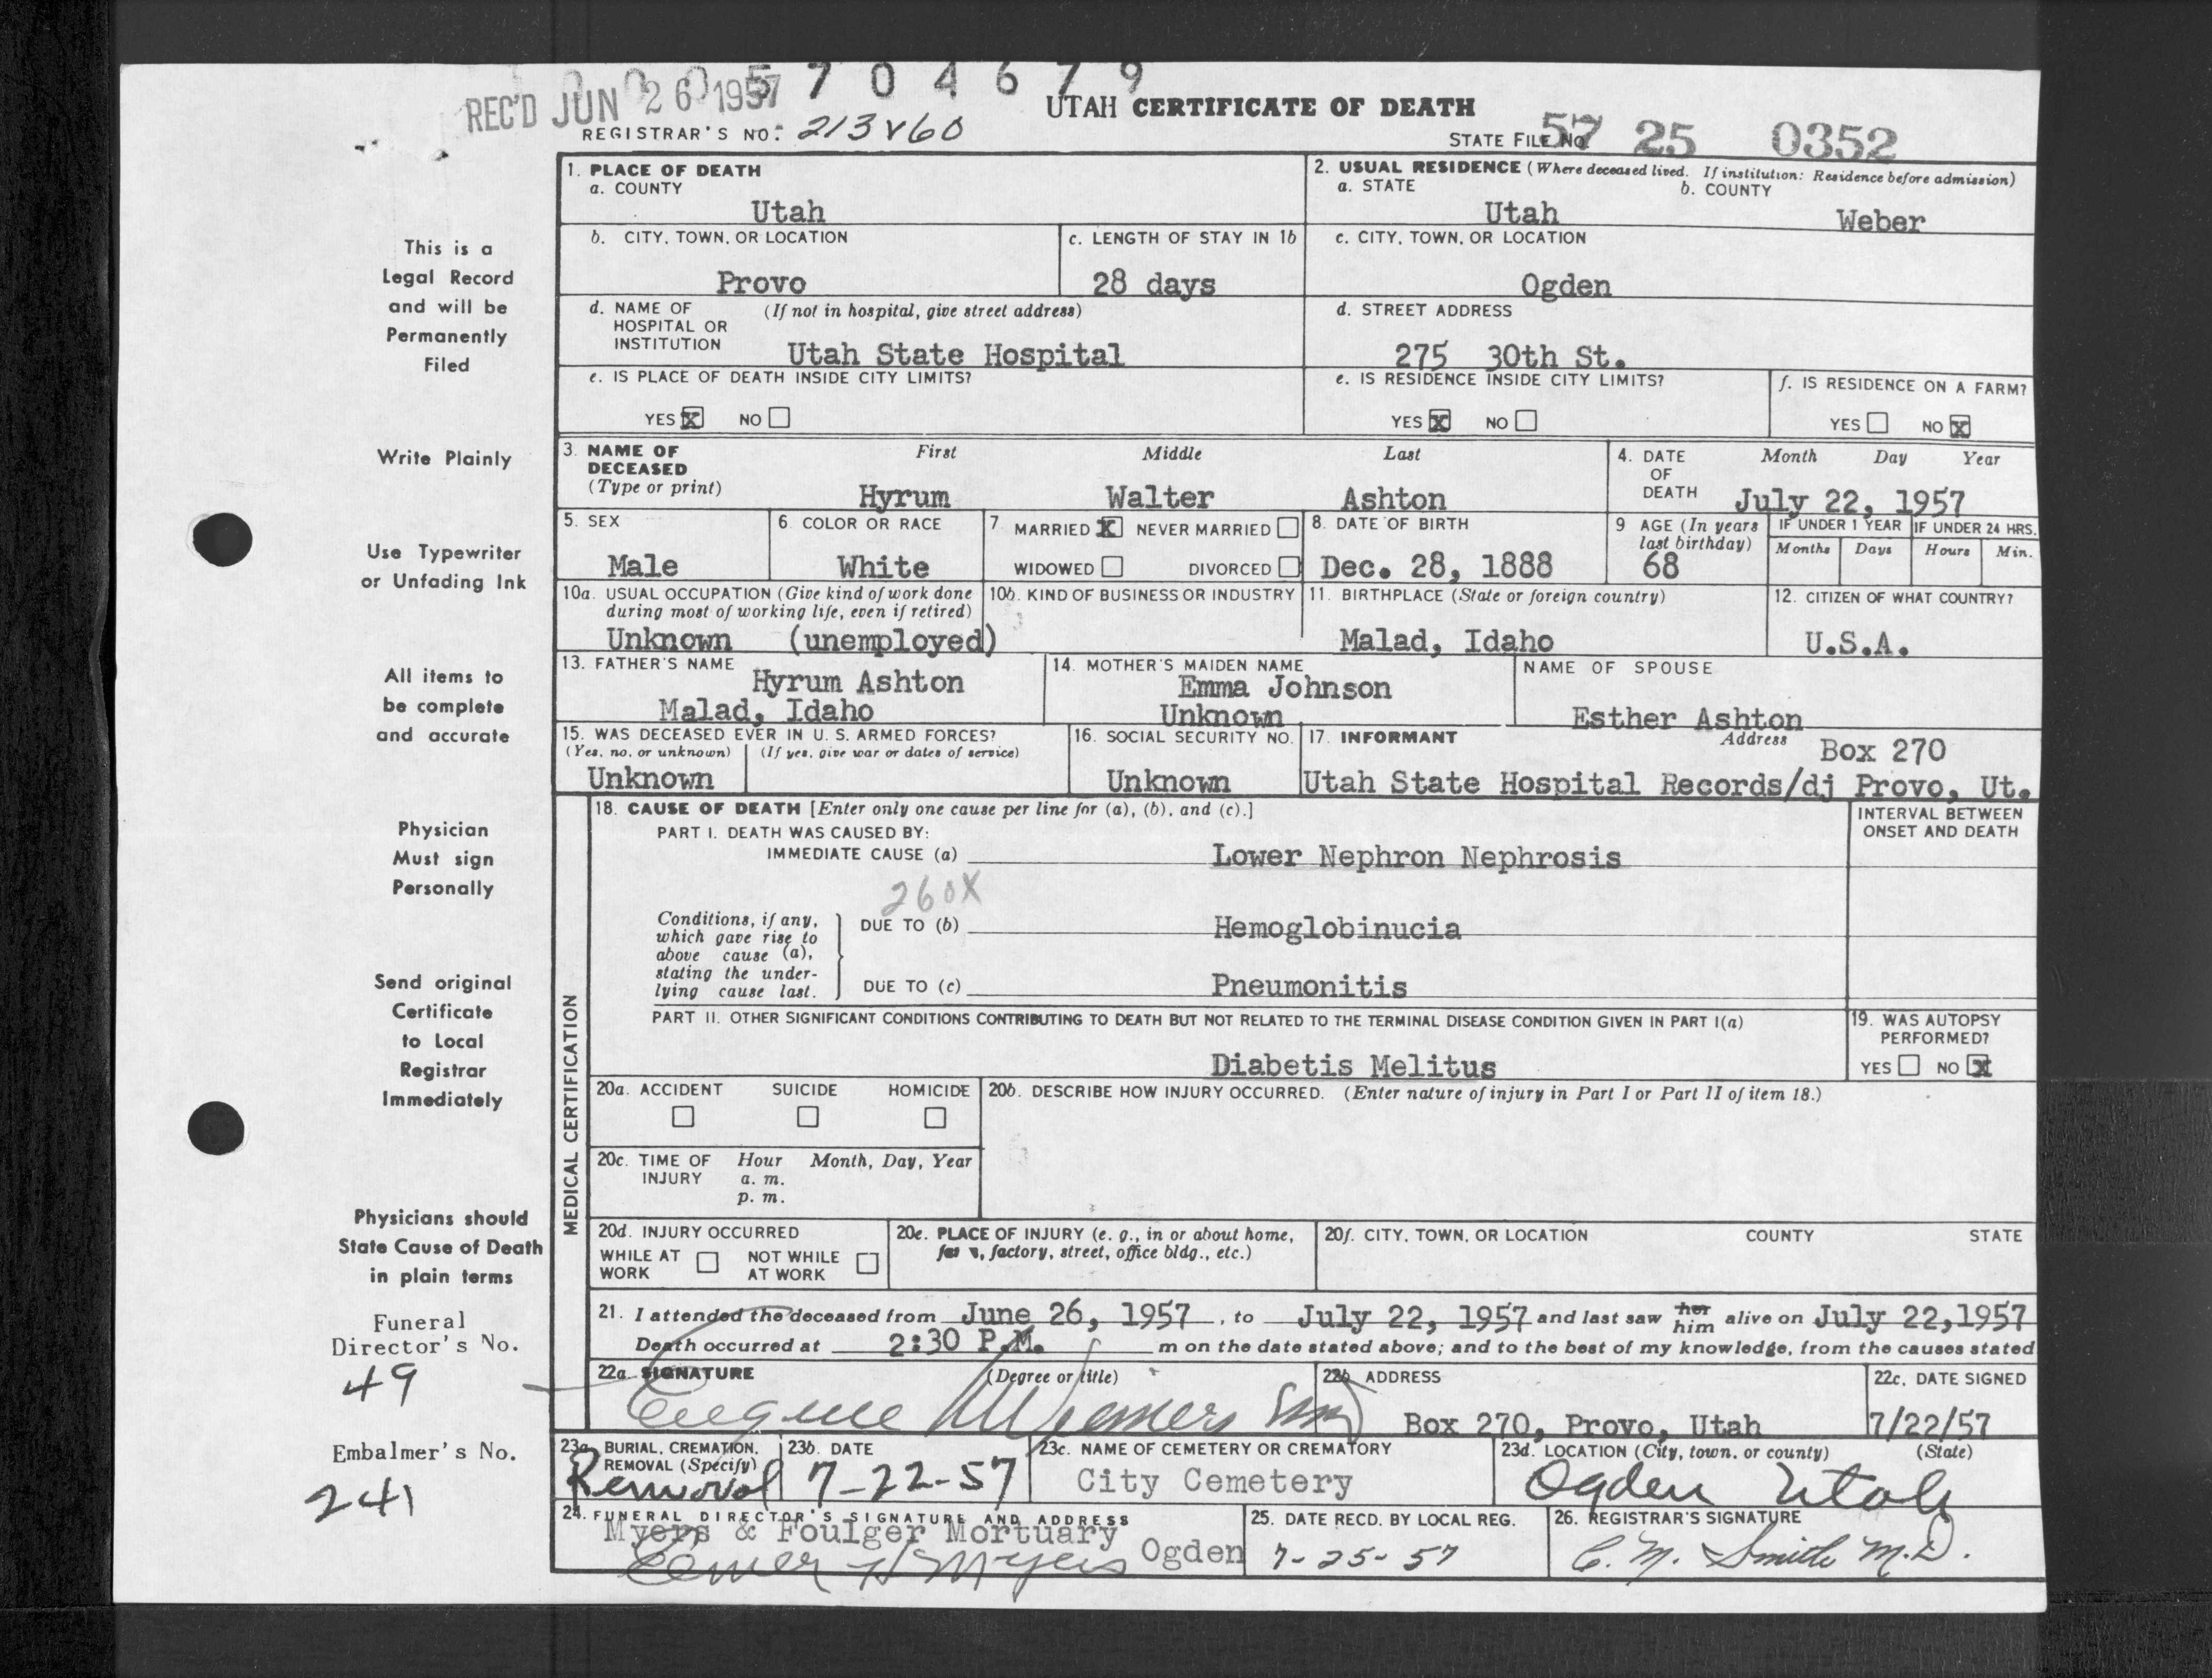 5704679
REC'D JUN 26 1957
UTAH CERTIFICATE OF DEATH
REGISTRAR'S NO: 213 V 60
STATE FILE NO. 57 25 0352
This is a
Legal Record
and will be
Permanently
Filed
Write Plainly
Use Typewriter
or Unfading Ink
All items to
be complete
and accurate
Physician
Must sign
Personally
Send original
Certificate
to Local
Registrar
Immediately
Physicians should
State Cause of Death
in plain terms
Funeral
Director's No.
49
Embalmer's No.
241
1. PLACE OF DEATH
a. COUNTY
Utah
2. USUAL RESIDENCE (Where deceased lived. If institution: Residence before admission)
a. STATE b. COUNTY
Utah Weber
b. CITY, TOWN, OR LOCATION
Provo
c. LENGTH OF STAY IN 1b
28 days
c. CITY, TOWN, OR LOCATION
Ogden
d. NAME OF (If not in hospital, give street address)
HOSPITAL OR
INSTITUTION Utah State Hospital
d. STREET ADDRESS
275 30th St.
e. IS PLACE OF DEATH INSIDE CITY LIMITS?
YES X NO
e. IS RESIDENCE INSIDE CITY LIMITS?
YES X NO
f. IS RESIDENCE ON A FARM?
YES NO X
3. NAME OF First Middle Last
DECEASED
(Type or print) Hyrum Walter Ashton
4. DATE Month Day Year
OF
DEATH July 22, 1957
5. SEX
Male
6. COLOR OR RACE
White
7. MARRIED X NEVER MARRIED
WIDOWED DIVORCED
8. DATE OF BIRTH
Dec. 28, 1888
9 AGE (In years
last birthday)
68
IF UNDER 1 YEAR IF UNDER 24 HRS.
Months Days Hours Min.
10a. USUAL OCCUPATION (Give kind of work done
during most of working life, even if retired)
Unknown (unemployed)
10b. KIND OF BUSINESS OR INDUSTRY
11. BIRTHPLACE (State or foreign country)
Malad, Idaho
12. CITIZEN OF WHAT COUNTRY?
U.S.A.
13. FATHER'S NAME
Hyrum Ashton
Malad, Idaho
14. MOTHER'S MAIDEN NAME
Emma Johnson
Unknown
NAME OF SPOUSE
Esther Ashton
15. WAS DECEASED EVER IN U. S. ARMED FORCES?
(Yes, no, or unknown) (If yes, give war or dates of service)
Unknown
16. SOCIAL SECURITY NO.
Unknown
17. INFORMANT Address Box 270
Utah State Hospital Records/dj Provo, Ut.
MEDICAL CERTIFICATION
18. CAUSE OF DEATH [Enter only one cause per line for (a), (b), and (c).]
INTERVAL BETWEEN
ONSET AND DEATH
PART I. DEATH WAS CAUSED BY:
IMMEDIATE CAUSE (a) Lower Nephron Nephrosis
260X
Conditions, if any,
which gave rise to
above cause (a),
stating the under-
lying cause last.
DUE TO (b) Hemoglobinucia
DUE TO (c) Pneumonitis
PART II. OTHER SIGNIFICANT CONDITIONS CONTRIBUTING TO DEATH BUT NOT RELATED TO THE TERMINAL DISEASE CONDITION GIVEN IN PART I(a)
Diabetis Melitus
19. WAS AUTOPSY
PERFORMED?
YES NO X
20a. ACCIDENT SUICIDE HOMICIDE
20b. DESCRIBE HOW INJURY OCCURRED. (Enter nature of injury in Part I or Part II of item 18.)
20c. TIME OF Hour Month, Day, Year
INJURY a. m.
p. m.
20d. INJURY OCCURRED
WHILE AT NOT WHILE
WORK AT WORK
20e. PLACE OF INJURY (e. g., in or about home,
factory, street, office bldg., etc.)
20f. CITY, TOWN, OR LOCATION COUNTY STATE
21. I attended the deceased from June 26, 1957, to July 22, 1957 and last saw her him alive on July 22,1957
Death occurred at 2:30 P.M. m on the date stated above; and to the best of my knowledge, from the causes stated
22a. SIGNATURE (Degree or title)
Eugene
22b. ADDRESS
Box 270, Provo, Utah
22c. DATE SIGNED
7/22/57
23a. BURIAL, CREMATION,
REMOVAL (Specify)
Removal
23b. DATE
7-22-57
23c. NAME OF CEMETERY OR CREMATORY
City Cemetery
23d. LOCATION (City, town, or county) (State)
Ogden Utah
24. FUNERAL DIRECTOR'S SIGNATURE AND ADDRESS
Myers & Foulger Mortuary
Elmer H Myers Ogden
25. DATE RECD. BY LOCAL REG.
7-25-57
26. REGISTRAR'S SIGNATURE
C. M. Smith M.D.